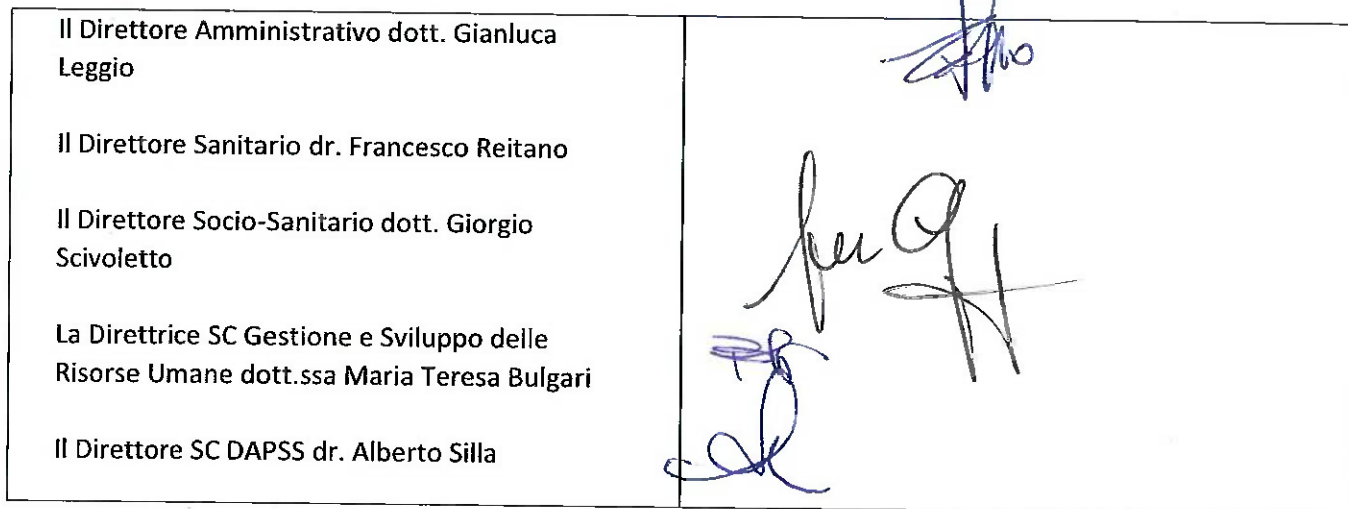 Il Direttore Amministrativo dott. Gianluca
Leggio
Il Direttore Sanitario dr. Francesco Reitano
Il Direttore Socio-Sanitario dott. Giorgio
Scivoletto
La Direttrice SC Gestione e Sviluppo delle
Risorse Umane dott.ssa Maria Teresa Bulgari
Il Direttore SC DAPSS dr. Alberto Silla